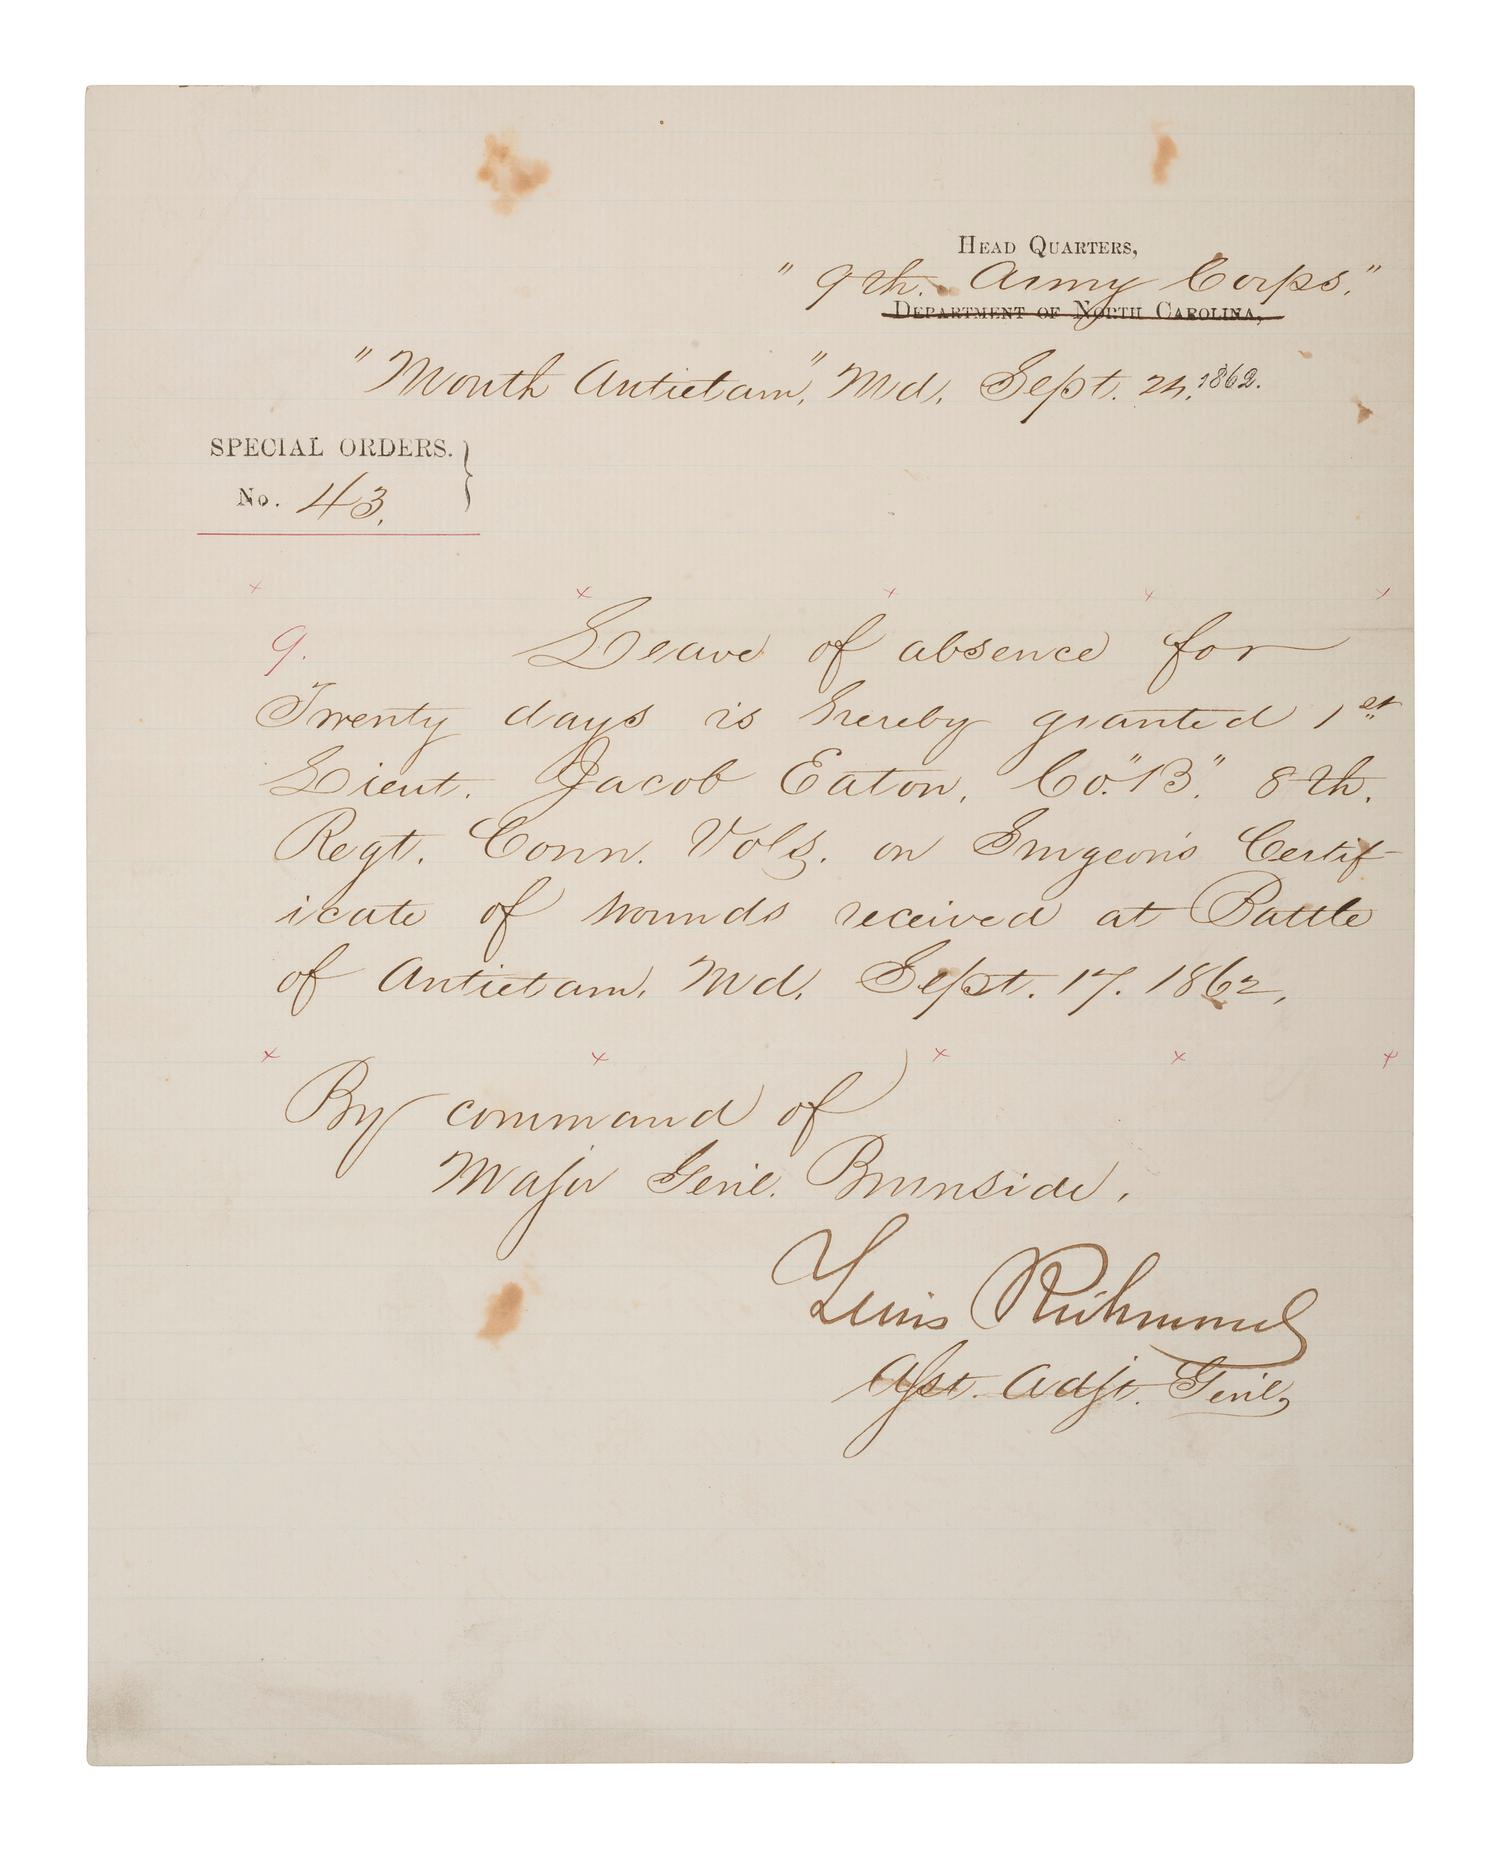 HEAD QUARTERS,
" 9th. Army Corps."
DEPARTMENT OF NORTH CAROLINA,
"Mouth Antietam", Md. Sept. 24. 1862.
SPECIAL ORDERS. }
No. 43.
x x x x x
9. Leave of absence for
Twenty days is hereby granted 1st
Lieut. Jacob Eaton, Co. "B". 8th.
Regt. Conn. Vols. on Surgeon's Certif-
icate of wounds received at Battle
of Antietam, Md. Sept. 17. 1862.
x x x x x
By command of
Major Genl. Burnside.
Lewis Richmond
Asst. Adjt. Genl.